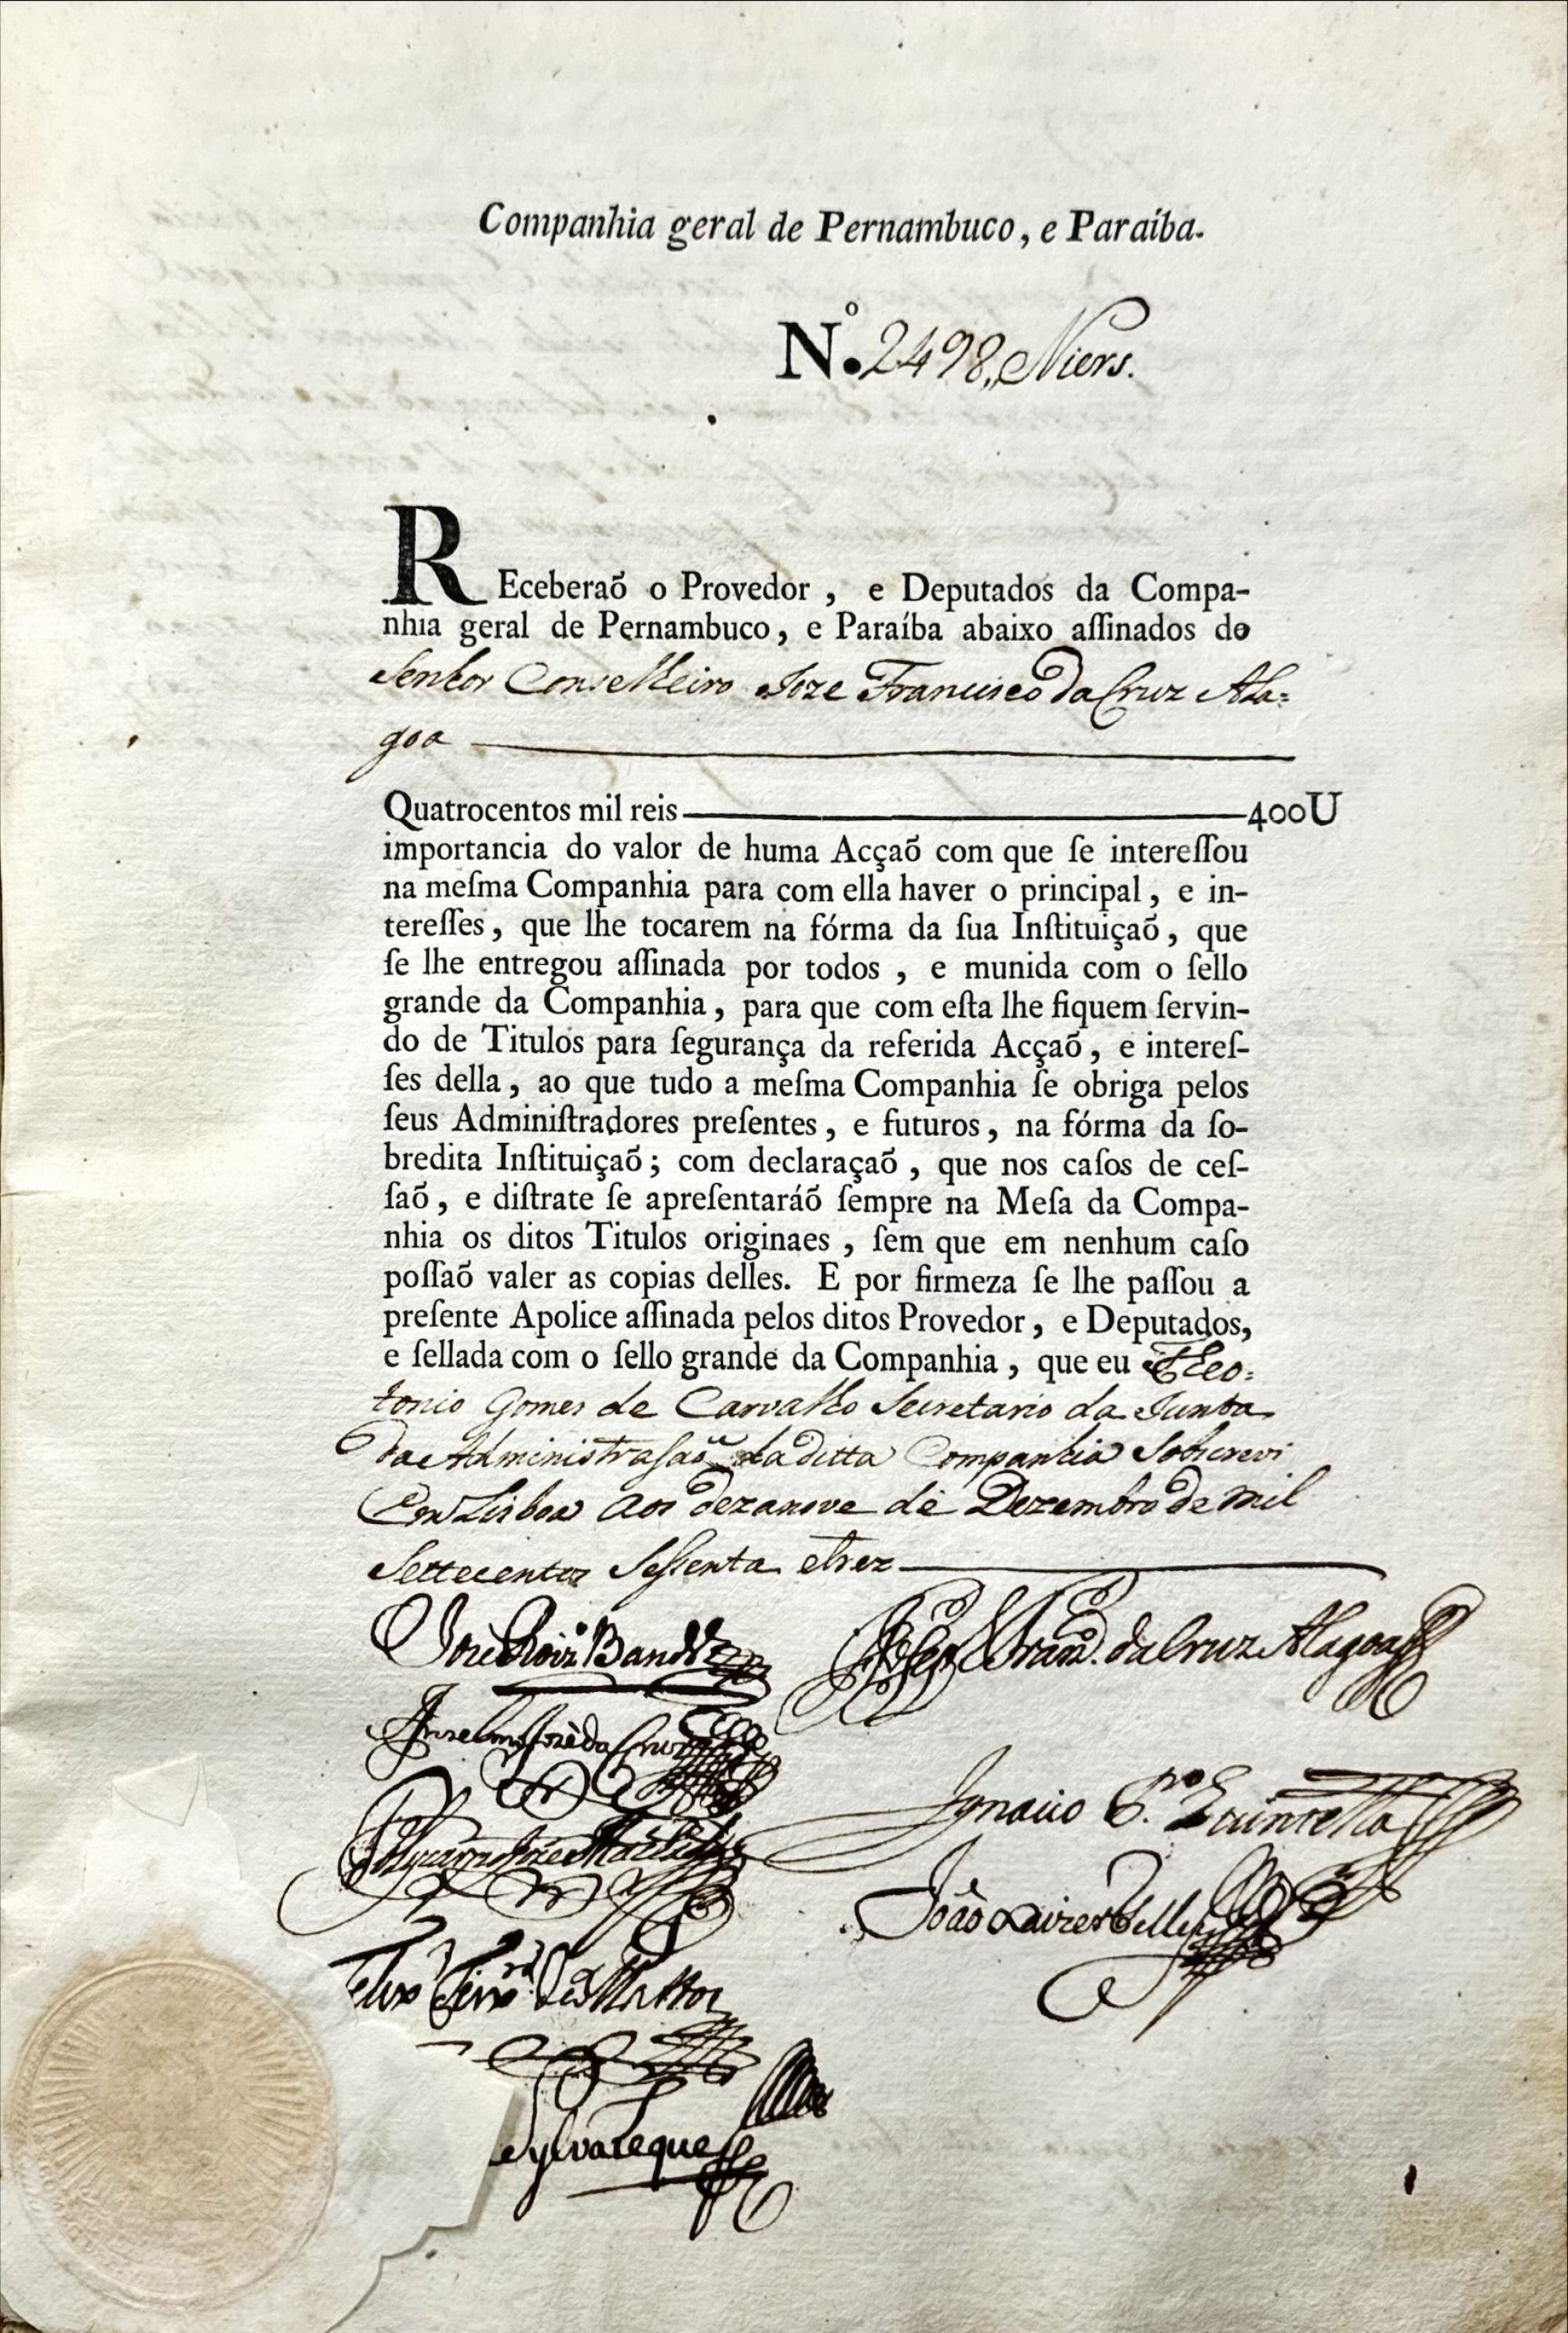 Companhia geral de Pernambuco, e Paraíba.
Nº. 2498,, Niers.
REceberaõ o Provedor, e Deputados da Compa-
nhia geral de Pernambuco, e Paraíba abaixo aſſinados do
Senhor Conselheiro Joze Francisco da Cruz Ala=
goa
Quatrocentos mil reis 400U
importancia do valor de huma Acçaõ com que ſe intereſſou
na meſma Companhia para com ella haver o principal, e in-
tereſſes, que lhe tocarem na fórma da ſua Inſtituiçaõ, que
ſe lhe entregou aſſinada por todos, e munida com o ſello
grande da Companhia, para que com eſta lhe fiquem ſervin-
do de Titulos para ſegurança da referida Acçaõ, e intereſ-
ſes della, ao que tudo a meſma Companhia ſe obriga pelos
ſeus Adminiſtradores preſentes, e futuros, na fórma da ſo-
bredita Inſtituiçaõ; com declaraçaõ, que nos caſos de ceſ-
ſaõ, e diſtrate ſe apreſentaráõ ſempre na Meſa da Compa-
nhia os ditos Titulos originaes, ſem que em nenhum caſo
poſſaõ valer as copias delles. E por firmeza ſe lhe paſſou a
preſente Apolice aſſinada pelos ditos Provedor, e Deputados,
e ſellada com o ſello grande da Companhia, que eu Theo=
tonio Gomes de Carvalho Secretario da Junta
da Administraſaõ da ditta Companhia Sobscrevi
Em Lisboa aos dezanove de Dezembro de mil
Settecentos Seſſenta etrez
Joze Roiz Bandr.ª
Joseph Fran.co da Cruz Alagoa
Anselmo Joze da Cruz
Ignacio P.º Quintella
Polycarpo Joze Machado
João Xavier Telles
Felix Teixr.ª de Mattos
Sylva Leque